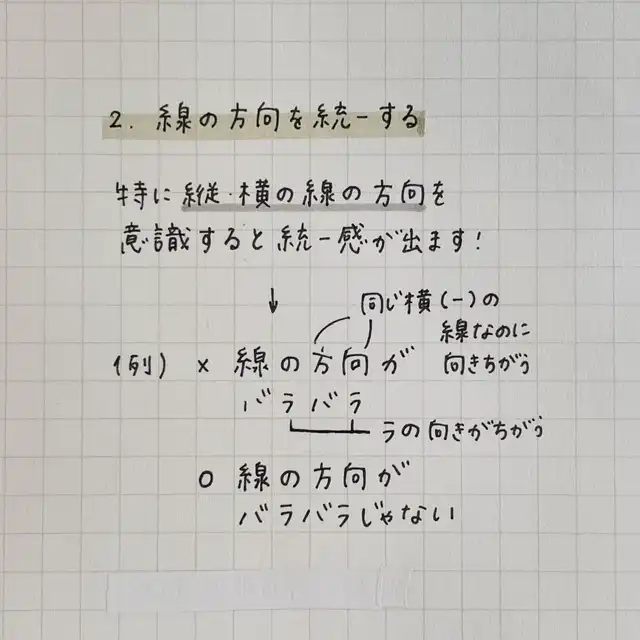 2. 線の方向を統一する
特に縦・横の線の方向を
意識すると統一感が出ます!
↓
同じ横(一)の
線なのに
向きちがう
(例) × 線の方向が
バラバラ
ラの向きがちがう
○ 線の方向が
バラバラじゃない